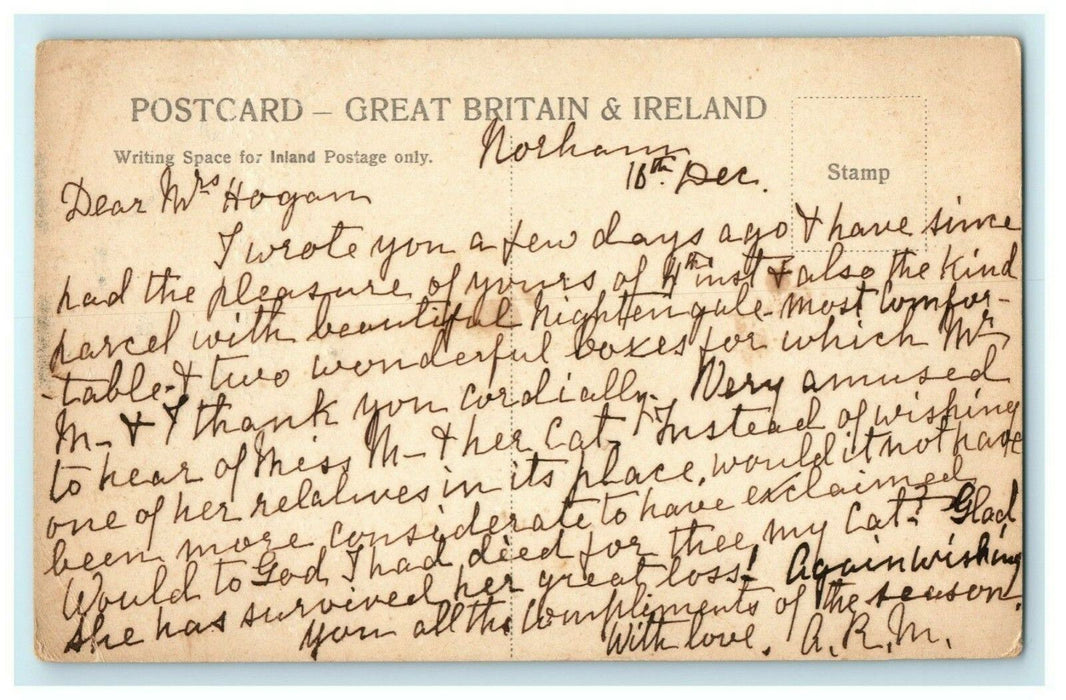 POSTCARD – GREAT BRITAIN & IRELAND
Writing Space for Inland Postage only.
Stamp
Norham
16th Dec.
Dear Mrs Hogan
I wrote you a few days ago & have since
had the pleasure of yours of 4th inst & also the kind
parcel with beautiful nightengale - most comfor-
-table - & two wonderful boxes for which Mr
M- & I thank you cordially. Very amused
to hear of Miss M- & her Cat - Instead of wishing
one of her relatives in its place, would it not have
been more considerate to have exclaimed
Would to God I had died for thee my Cat? Glad
she has survived her great loss! Again wishing
you all the Compliments of the season.
With love. A.R.M.